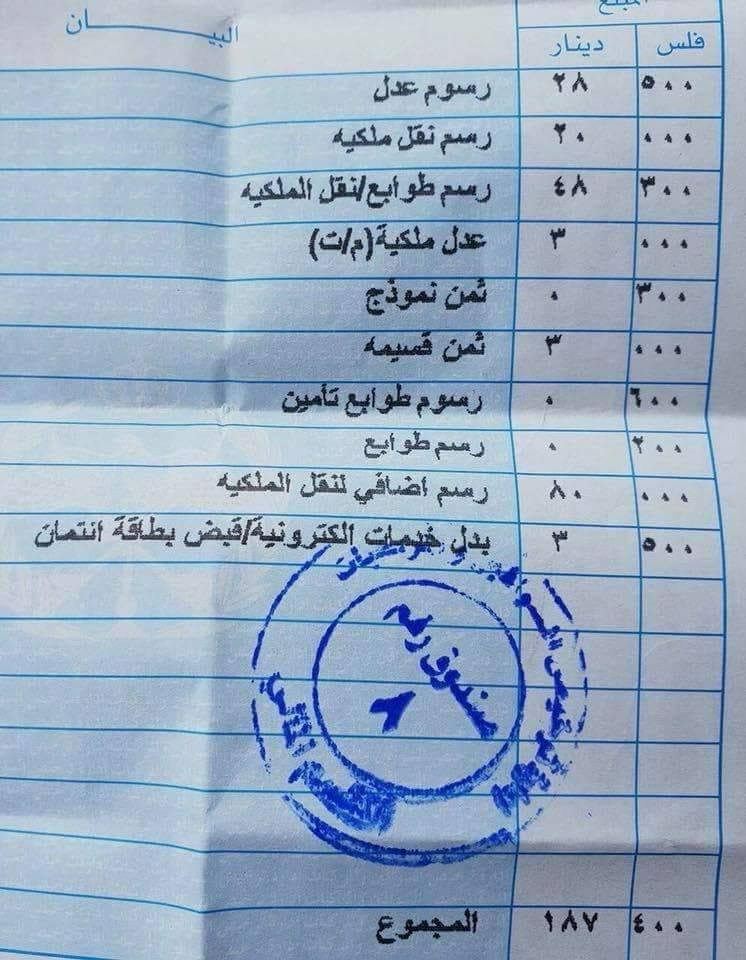 المبلغ
فلس دينار البيــــــان
٥٠٠ ٢٨ رسوم عدل
٠٠٠ ٢٠ رسم نقل ملكيه
٣٠٠ ٤٨ رسم طوابع/نقل الملكيه
٠٠٠ ٣ عدل ملكية(م/ت)
٣٠٠ ٠ ثمن نموذج
٠٠٠ ٣ ثمن قسيمه
٦٠٠ ٠ رسوم طوابع تأمين
٢٠٠ ٠ رسم طوابع
٠٠٠ ٨٠ رسم اضافي لنقل الملكيه
٥٠٠ ٣ بدل خدمات الكترونية/قبض بطاقة ائتمان
صندوق رقم
٤٠٠ ١٨٧ المجموع